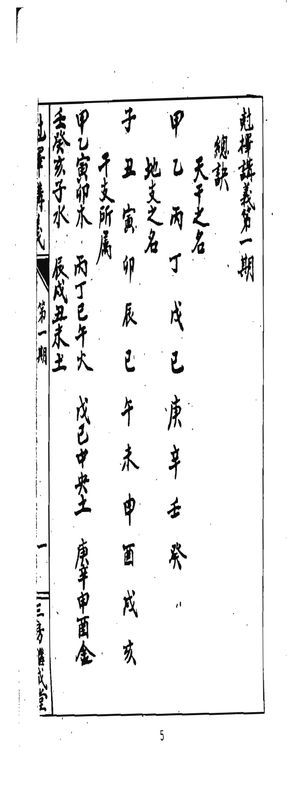 尅擇講義第一期
總訣
天干之名
甲乙丙丁戊己庚辛壬癸
地支之名
子丑寅卯辰巳午未申酉戌亥
干支所属
甲乙寅卯木 丙丁巳午火 戊己中央土 庚辛申酉金
壬癸亥子水 辰戌丑未土
尅擇講義 第一期 一 三房繼成堂
5